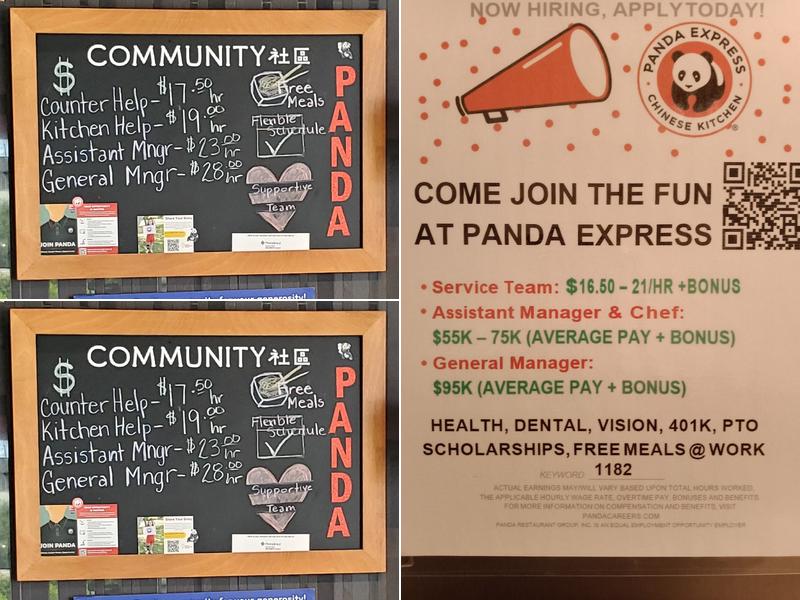 COMMUNITY社區
$
Counter Help - $17.50 hr
Kitchen Help - $19.00 hr
Assistant Mngr - $23.00 hr
General Mngr - $28.00 hr
Free Meals
Flexible Schedule
Supportive Team
PANDA
JOIN PANDA
Share Your Story
COMMUNITY社區
$
Counter Help - $17.50 hr
Kitchen Help - $19.00 hr
Assistant Mngr - $23.00 hr
General Mngr - $28.00 hr
Free Meals
Flexible Schedule
Supportive Team
PANDA
JOIN PANDA
Share Your Story
NOW HIRING, APPLY TODAY!
PANDA EXPRESS
CHINESE KITCHEN
®
COME JOIN THE FUN
AT PANDA EXPRESS
• Service Team: $16.50 – 21/HR +BONUS
• Assistant Manager & Chef:
$55K – 75K (AVERAGE PAY + BONUS)
• General Manager:
$95K (AVERAGE PAY + BONUS)
HEALTH, DENTAL, VISION, 401K, PTO
SCHOLARSHIPS, FREE MEALS @ WORK
KEYWORD: 1182
ACTUAL EARNINGS MAY/WILL VARY BASED UPON TOTAL HOURS WORKED,
THE APPLICABLE HOURLY WAGE RATE, OVERTIME PAY, BONUSES AND BENEFITS.
FOR MORE INFORMATION ON COMPENSATION AND BENEFITS, VISIT
PANDACAREERS.COM
PANDA RESTAURANT GROUP, INC. IS AN EQUAL EMPLOYMENT OPPORTUNITY EMPLOYER